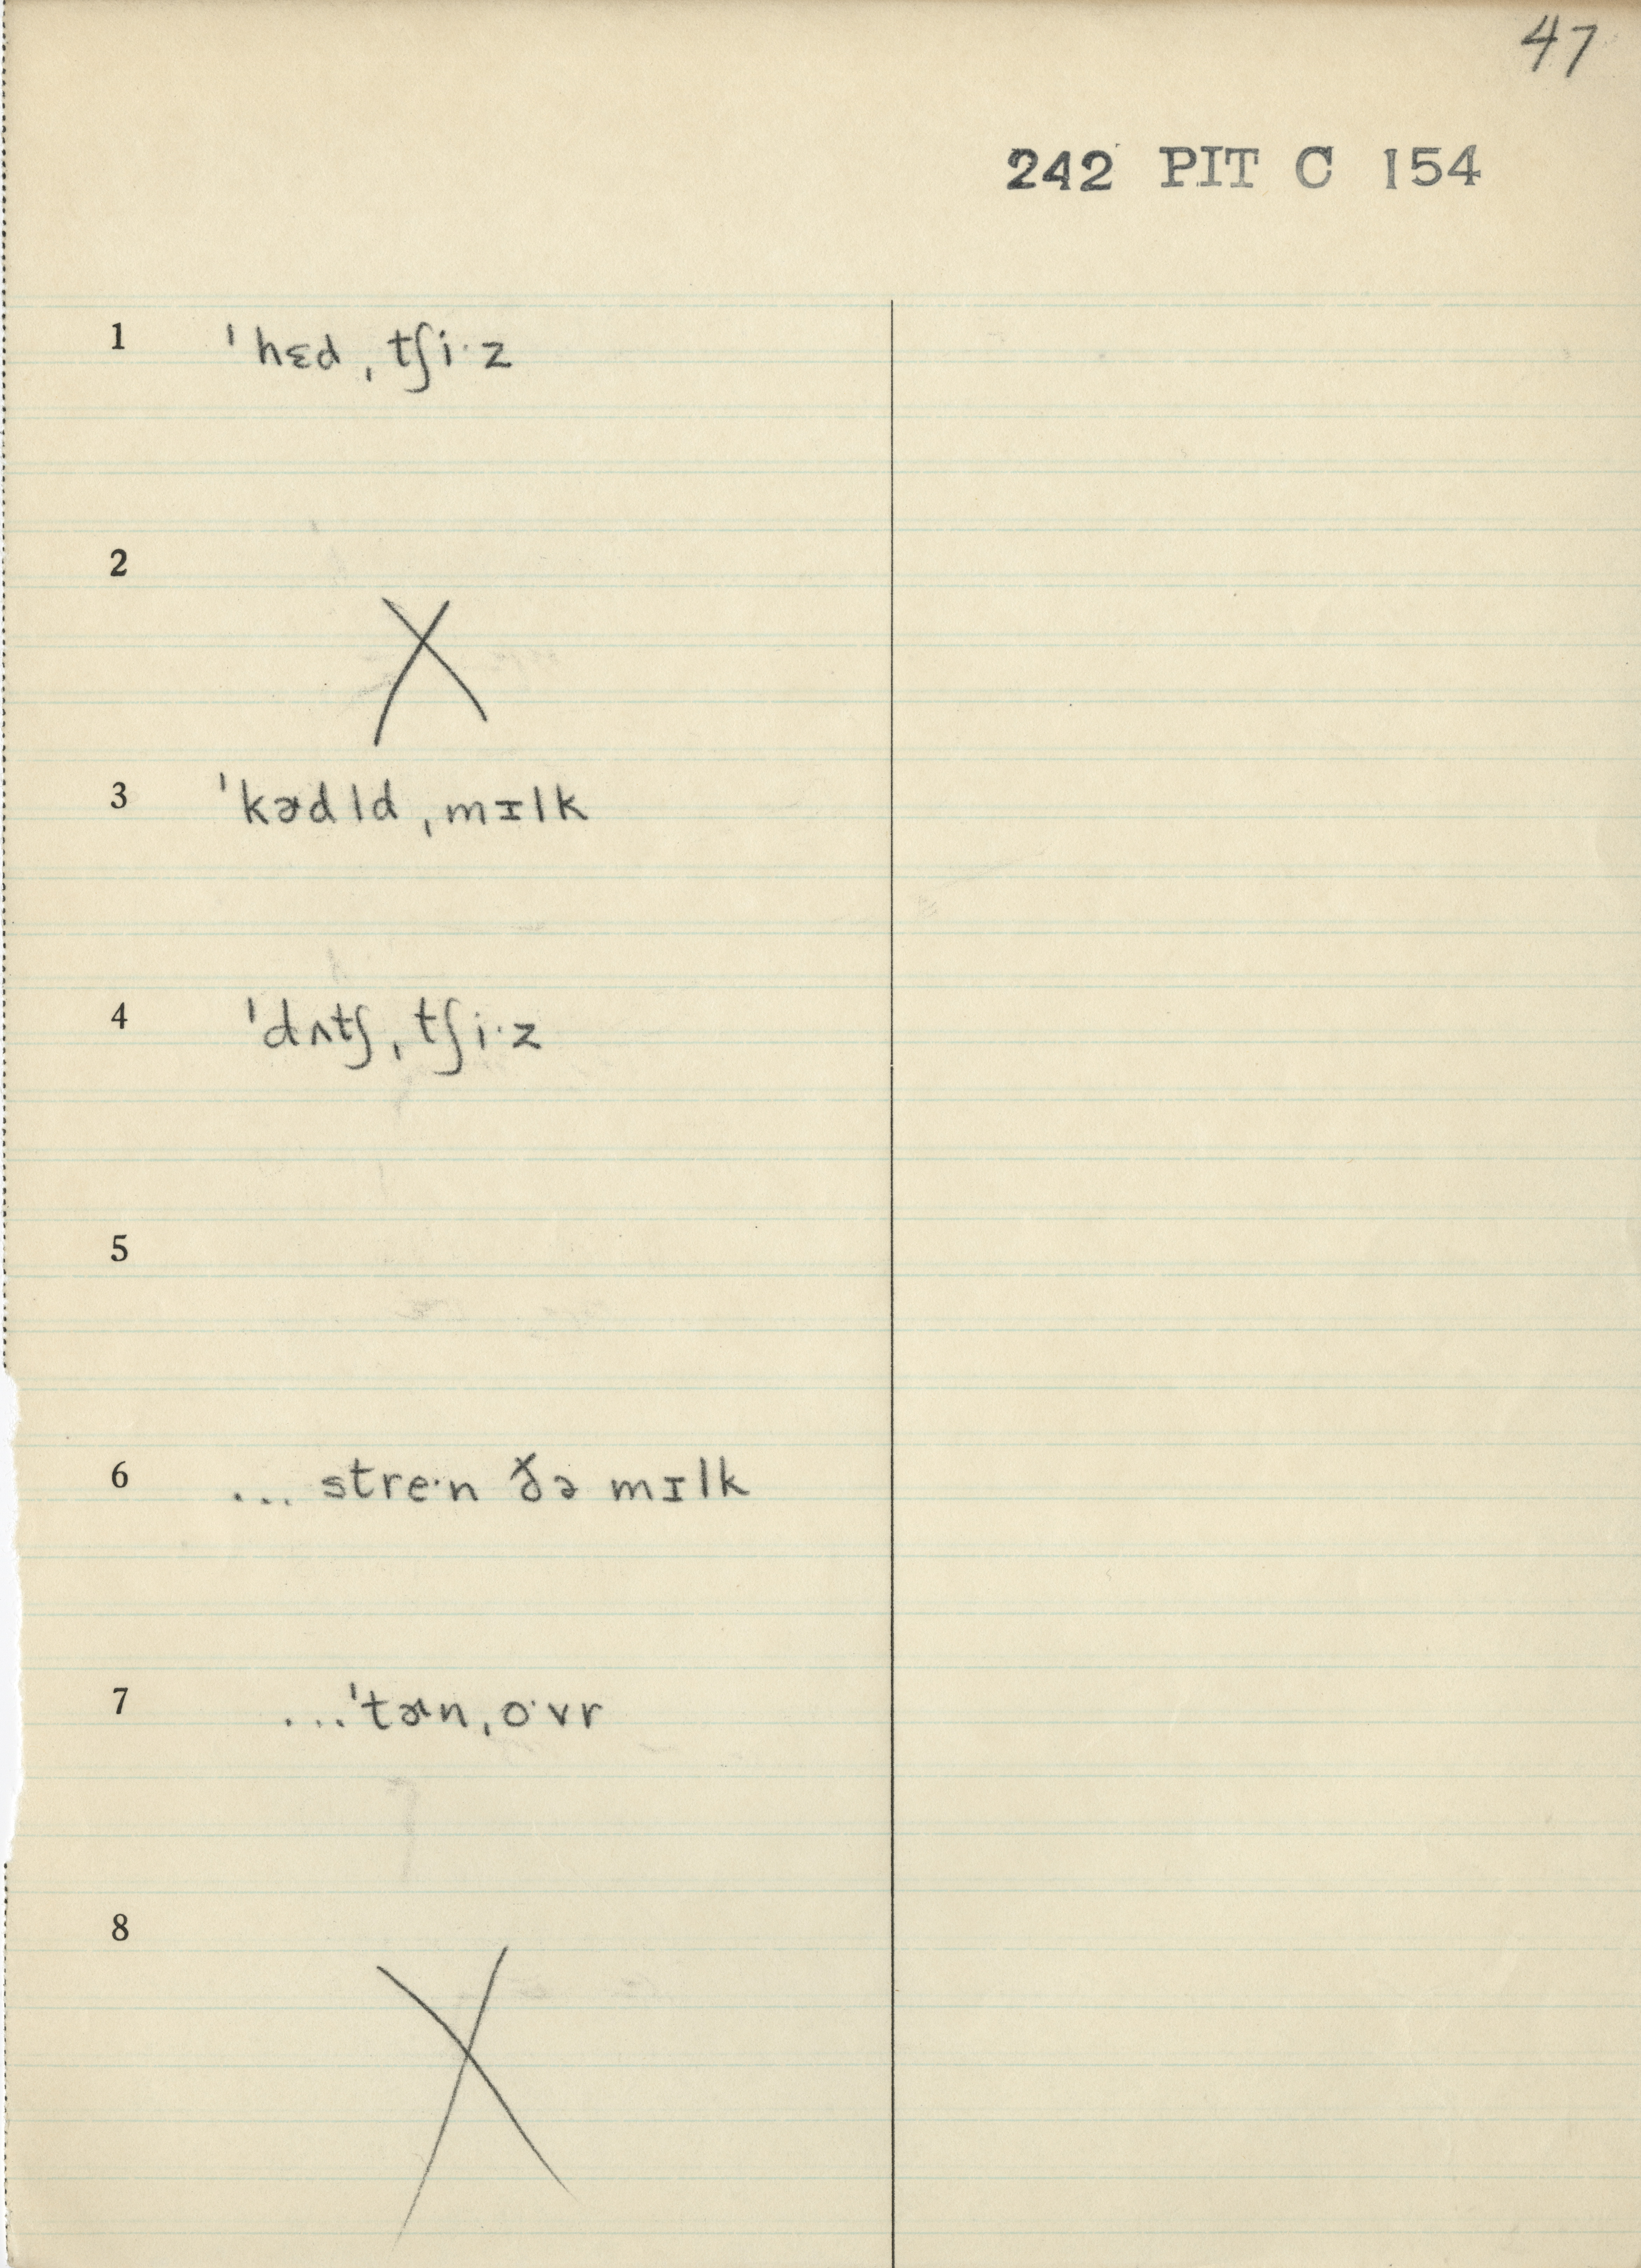 47
242 PIT C 154
1 ˈhɛd ˌtʃi·z
2 X
3 ˈkɚdld ˌmɪlk
4 ˈdʌtʃ ˌtʃi·z
5
6 ... stre·n ðə mɪlk
7 ...ˈtɚn ˌo·vr
8 X